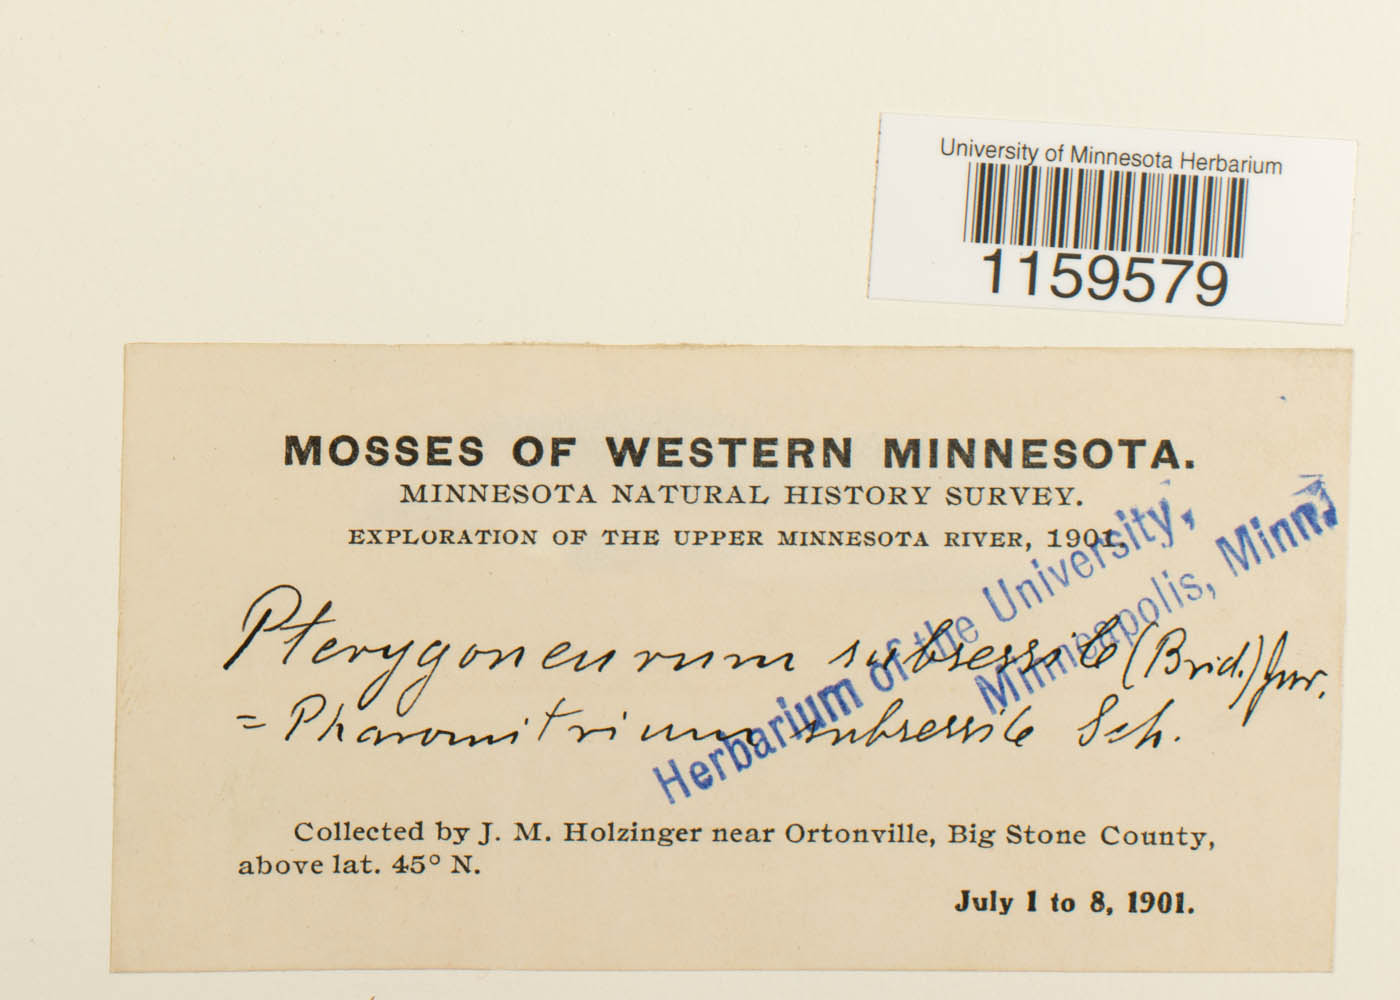 University of Minnesota Herbarium
1159579
MOSSES OF WESTERN MINNESOTA.
MINNESOTA NATURAL HISTORY SURVEY.
EXPLORATION OF THE UPPER MINNESOTA RIVER, 1901.
Pterygoneurum subsessile (Brid.) Jur.
= Pharomitrium subsessile Sch.
Herbarium of the University,
Minneapolis, Minn.
Collected by J. M. Holzinger near Ortonville, Big Stone County,
above lat. 45° N.
July 1 to 8, 1901.